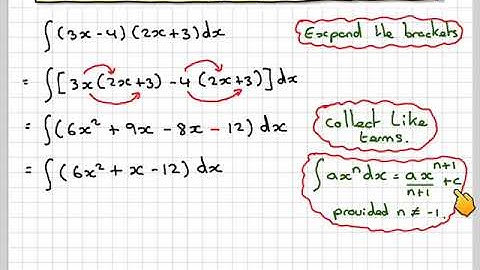 ∫(3x-4)(2x+3)dx
Expand the brackets
= ∫[3x(2x+3) -4(2x+3)]dx
= ∫(6x² + 9x - 8x - 12) dx
collect like
terms.
= ∫(6x² + x - 12) dx
∫axⁿdx = axⁿ⁺¹/n+1 + c
provided n ≠ -1.